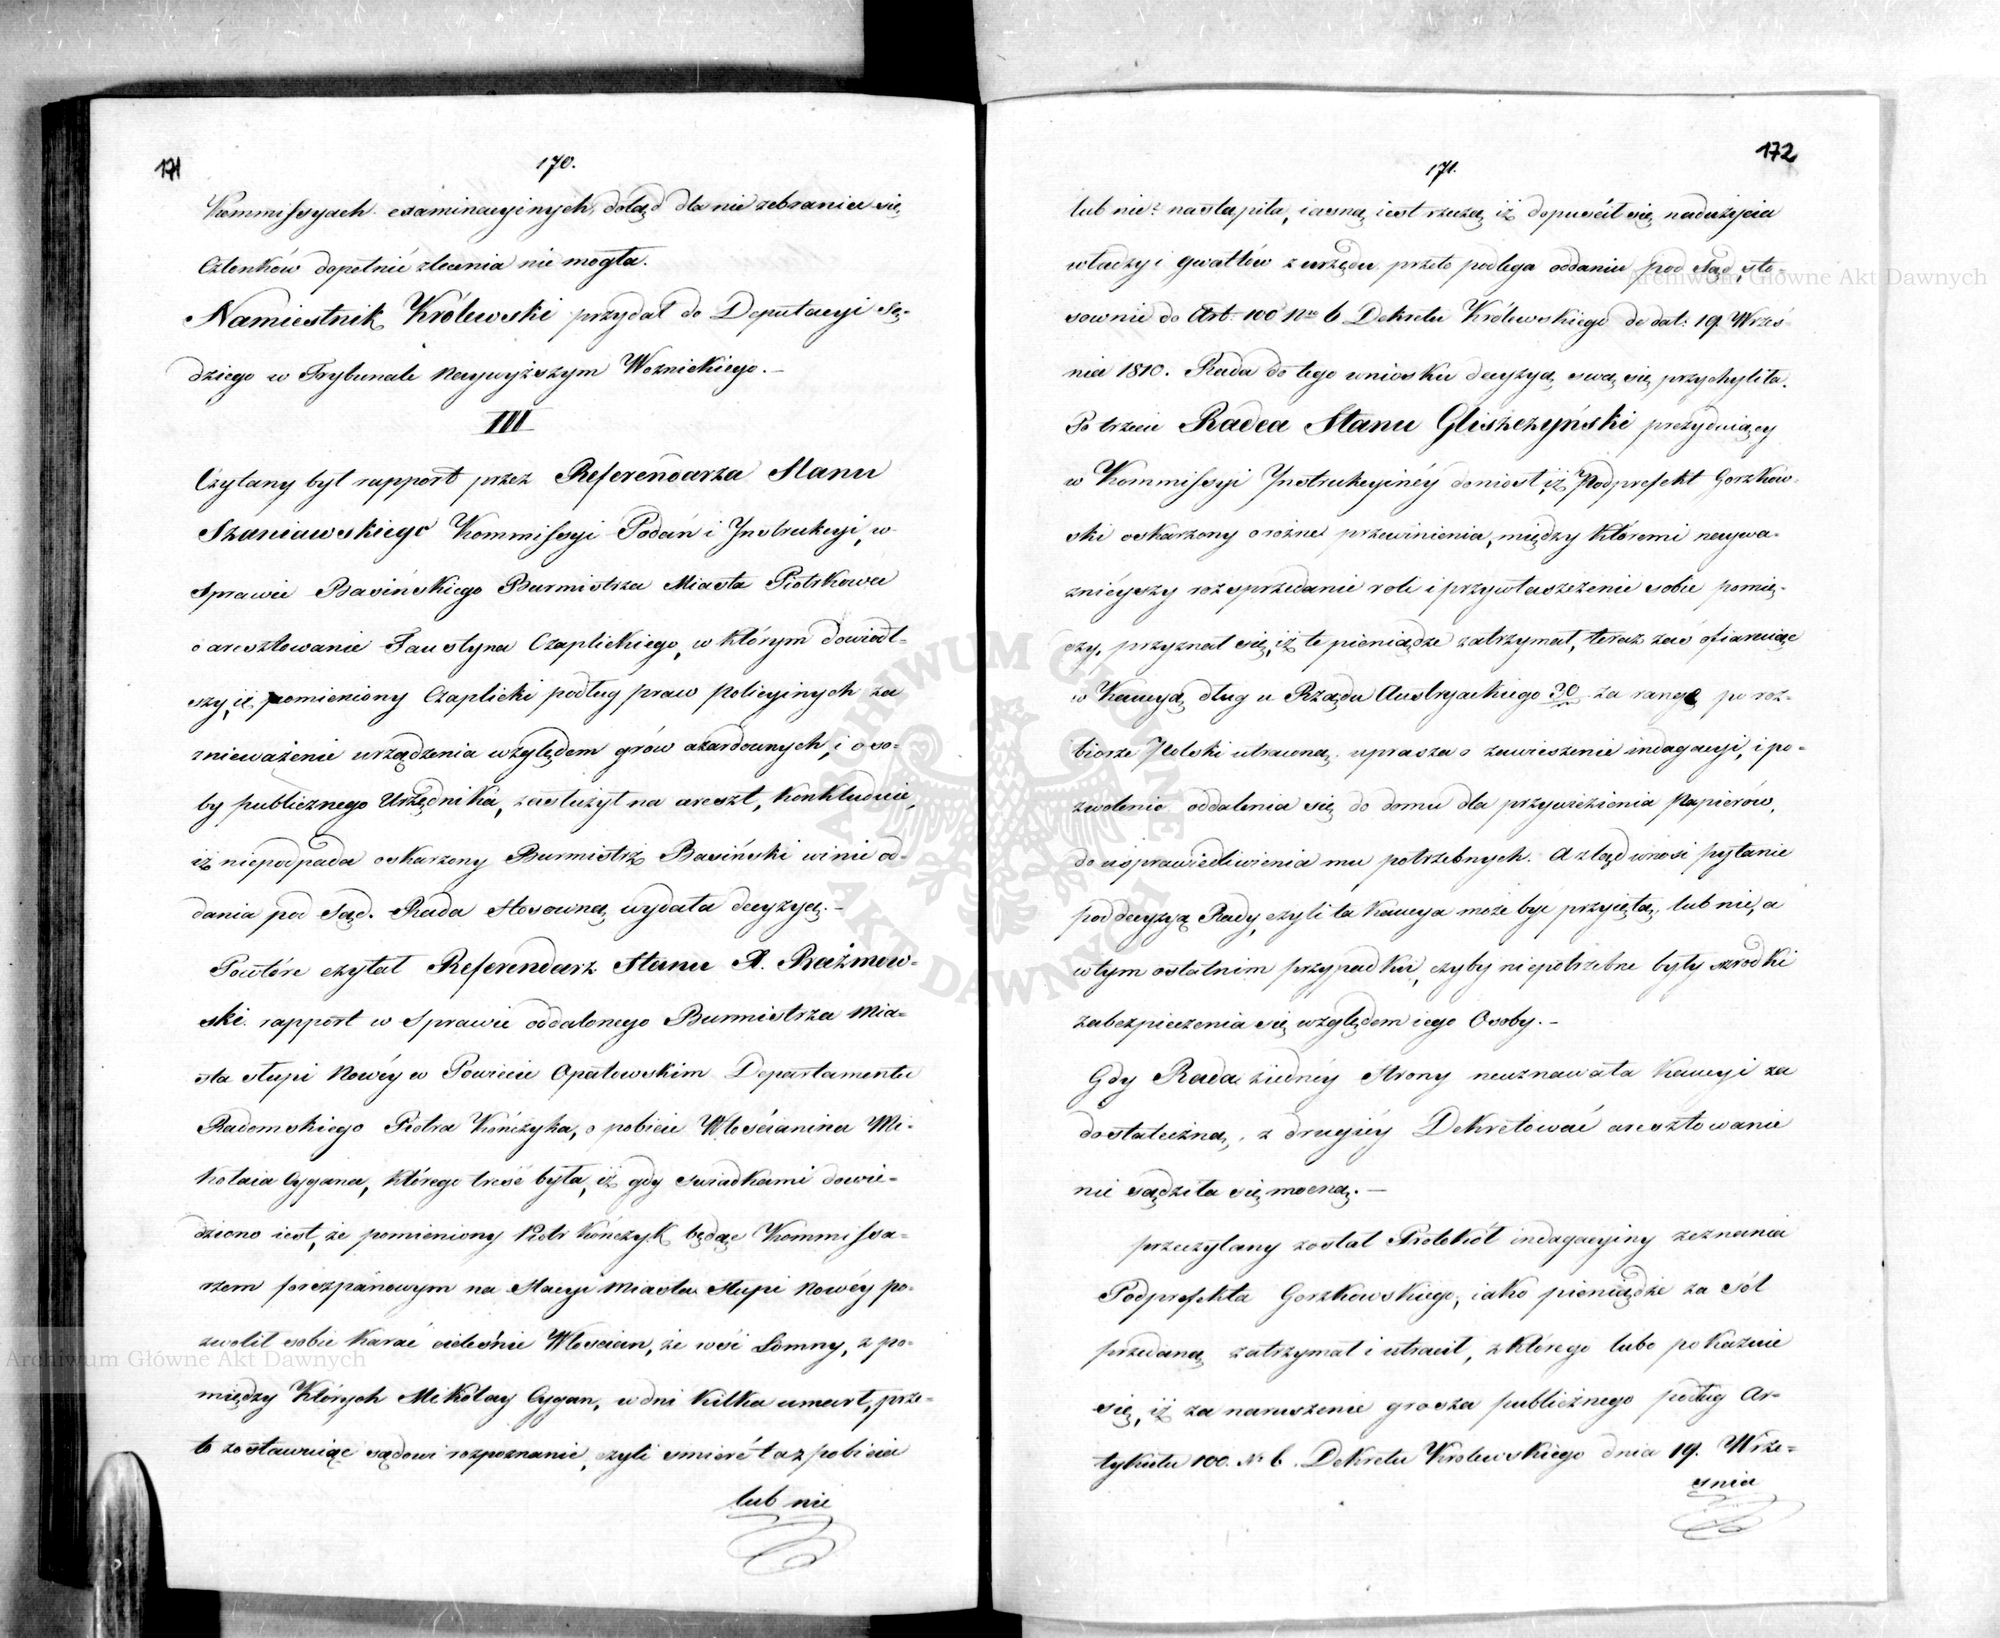 171
170.
Kommissyach examinacyinych, dotąd dla nie zebrania się
Członków dopełnić zlecenia nie mogła.
Namiestnik Królewski przydał do Deputacyi Sę-
dziego w Trybunale Naywyższym Woznickiego. –
III
Czytany był rapport przez Referendarza Stanu
Szaniawskiego Kommissyi Podań i Instrukcyi, w
Sprawie Basińskiego Burmistrza Miasta Piotrkowa
o aresztowanie Faustyna Czaplickiego, w którym dowiódł-
szy, iż pomieniony Czaplicki podług praw policyinych za
znieważenie urządzenia względem grów azardownych, i oso-
by publicznego Urzędnika, zasłużył na areszt, konkluduie,
iż niepodpada oskarzony Burmistrz Basiński winie od-
dania pod Sąd. Rada stosowną wydała decyzyą. –
Powtóre czytał Referendarz Stanu X. Raźmow-
ski rapport w Sprawie oddalonego Burmistrza Mia-
sta Słupi Nowéy w Powiecie Opatowskim Departamentu
Radomskiego Piotra Kończyka, o pobicie Włościanina Mi-
kołaia Cygana, którego treść była, iż gdy swiadkami dowie-
dziono iest, że pomieniony Piotr Kończyk będąc Kommissa-
rzem forszpanowym na Stacyi Miasta Słupi Nowéy po-
zwolił sobie karać cieleśnie Włościan, ze wsi Łomny, z po-
między których Mikołay Cygan, w dni kilka umarł, prze-
to zostawuiąc sądowi rozpoznanie, czyli smierć ta z pobicia
lub nie
172
171.
lub nie nastąpiła, iasną iest rzeczą iż dopuścił się nadużycia
władzy i gwałtów z urzędu, przeto podlega oddaniu pod Sąd, sto-
sownie do Art: 100 Nro 6 Dekretu Królewskiego de dat: 19 Wrześ-
nia 1810. Rada do tego wniosku decyzyą swą się przychyliła.
Po trzecie Radca Stanu Gliszczyński prezyduiący
w Kommissyi Instrukcyinéy doniosł, iż Podprefekt Gorzkow-
ski oskarzony o rożne przewinienia, między któremi naywa-
znieyszy rozsprzedanie roli i przywłaszczenie sobie pienię-
dzy, przyznał się, iż te pieniądze zatrzymał, teraz zaś ofiaruiąc
w Kaucyą dług u Rządu Austryackiego za rangę po roz-
biorze Polski utraconą, uprasza o zawieszenie indagacyi, i po-
zwolenie oddalenia się do domu dla przywiezienia Papierów,
do usprawiedliwienia mu potrzebnych. A ztąd wnosi pytanie
pod decyzyą Rady, czyli ta Kaucya może być przyiętą, lub nie, a
w tym ostatnim przypadku, czyby niepotrzebne były szrodki
zabezpieczenia się względem iego Osoby. –
Gdy Rada ziednéy Strony nieuznawała Kaucyi za
dostateczną, z drugiéy Dekretować aresztowanie
nie sądziła się mocną. –
przeczytany został Protokół indagacyiny zeznania
Podprefekta Gorzkowskiego, iako pieniądze za Sól
przedaną zatrzymał i utracił, z którego lubo pokazuie
się, iż za naruszenie grosza publicznego podług Ar-
tykułu 100. Nr 6. Dekretu Królewskiego dnia 19. Wrze-
snia
Archiwum Główne Akt Dawnych
Archiwum Główne Akt Dawnych
ARCHIWUM GŁÓWNE AKT DAWNYCH